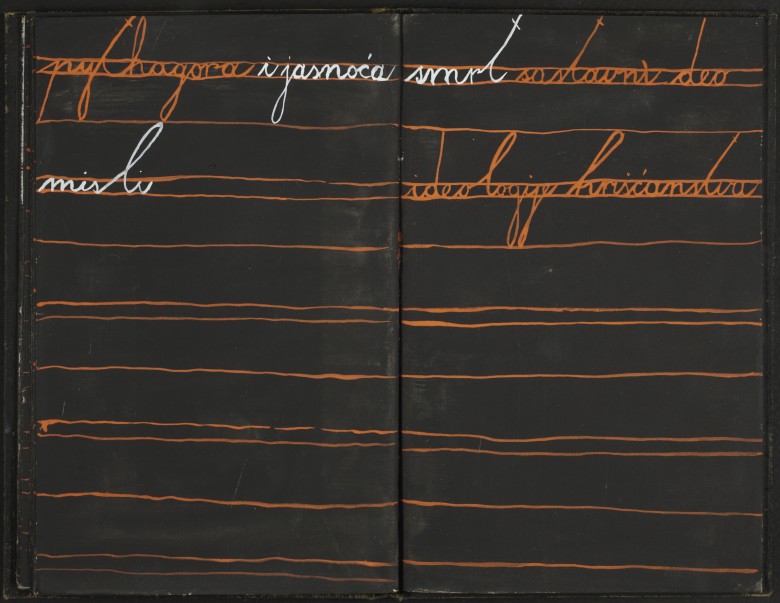 pythagora i jasnoća
misli
smrt sastavni deo
ideologije hrišćanstva